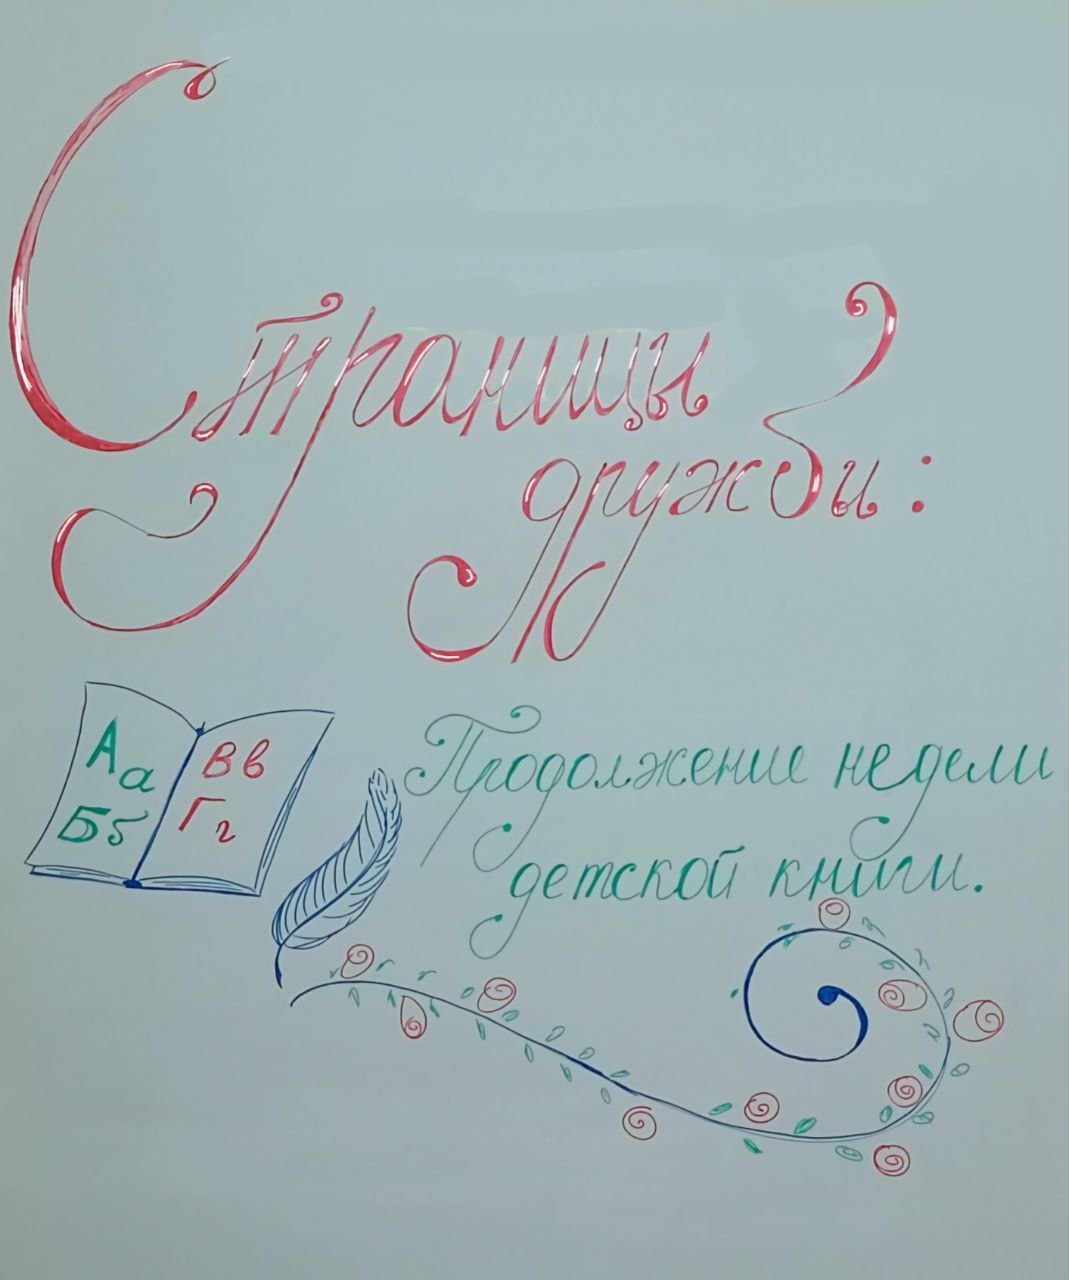 Страницы
дружбы:
Аа
Бб
Вв
Гг
Продолжение недели
детской книги.